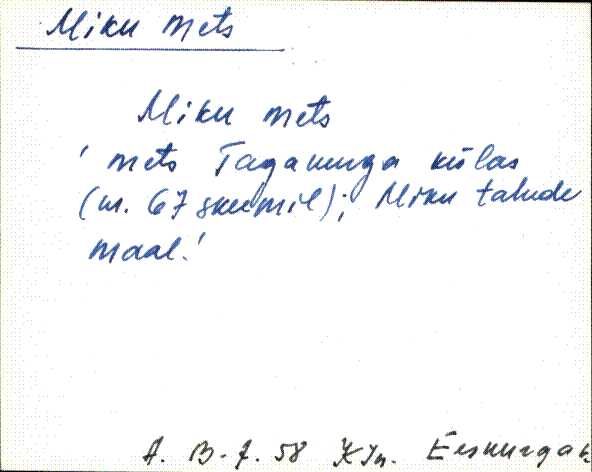 Miku mets
Miku mets
' mets Taganurga külas
(nr. 67 skeemil); Miku talude
maal.'
A. B-f. 58 KJn. Eesnurga k